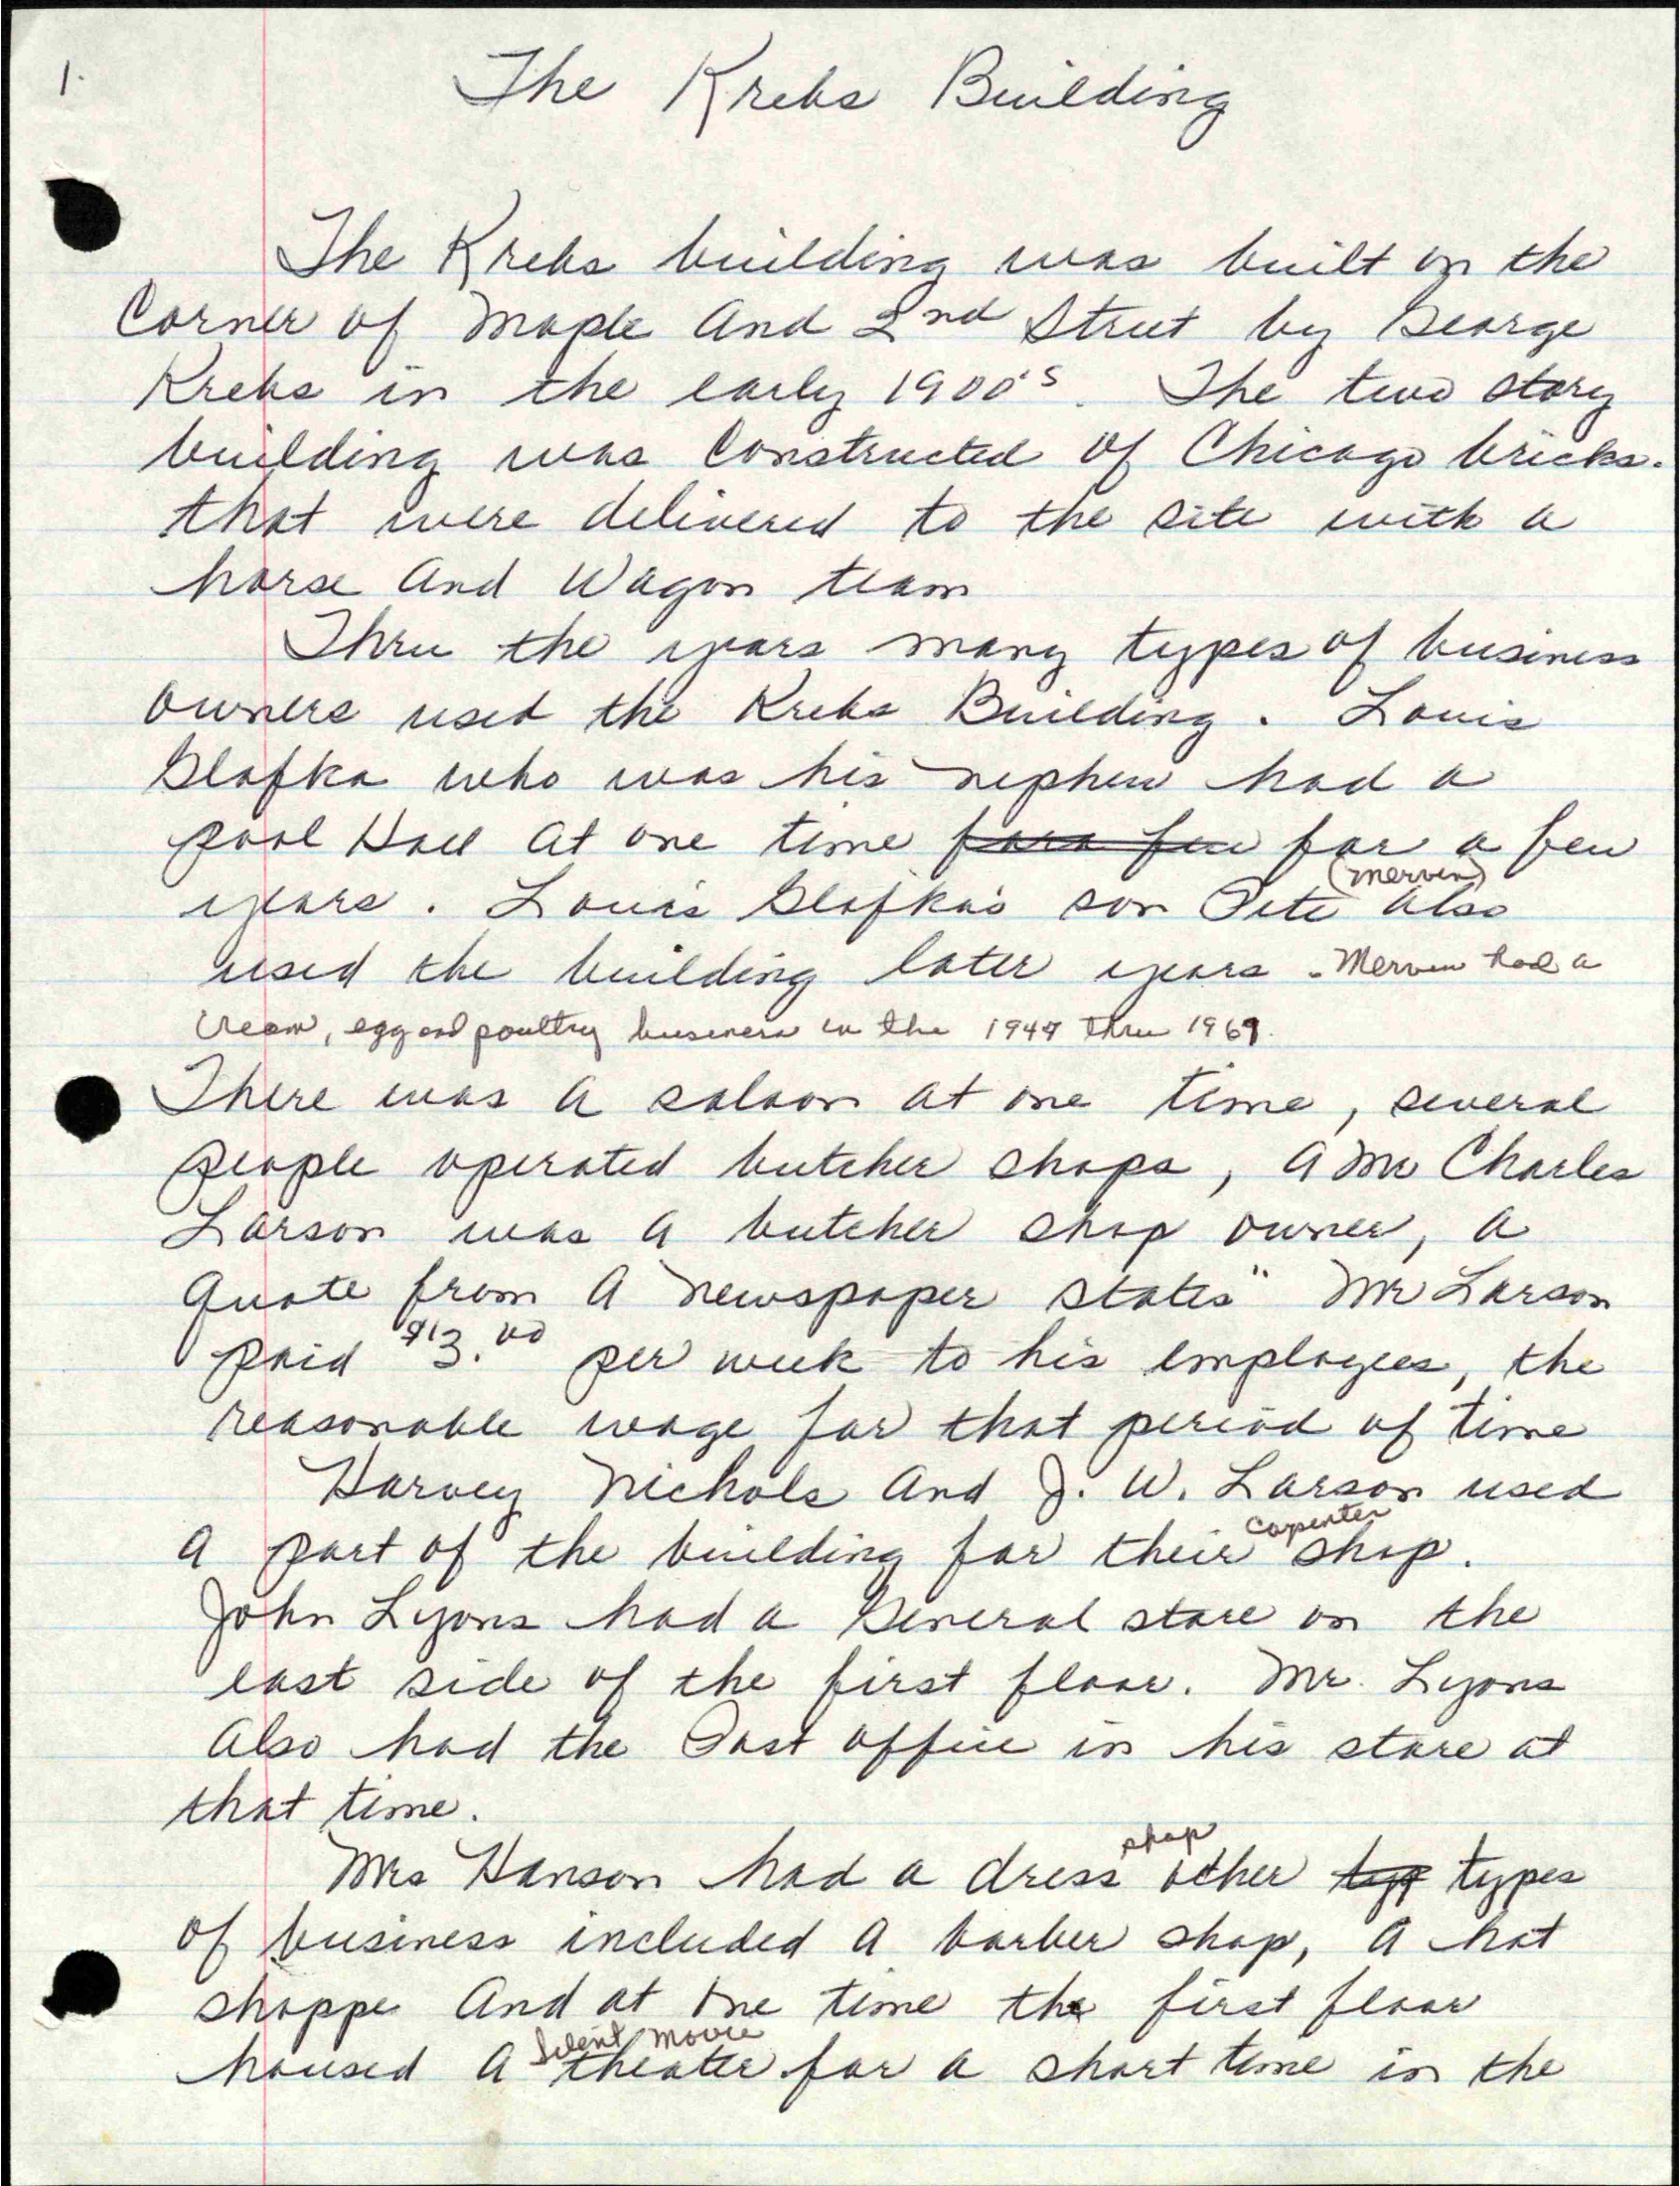 1.
The Krebs Building
The Krebs building was built on the
Corner of Maple And 2nd Street by George
Krebs in the early 1900's. The two story
building was Constructed of Chicago bricks.
that were delivered to the site with a
horse And Wagon team
Thru the years many types of business
owners used the Krebs Building. Louis
Glafka who was his nephew had a
pool Hall at one time for a few for a few
years. Louis Glafka's son Pete (Merven) also
used the building later years - Merven had a
Cream, egg and poultry business in the 1949 thru 1969.
There was a saloon at one time, several
people operated butcher shops, a Mr Charles
Larson was a butcher shop owner, a
quote from a newspaper states" Mr Larson
paid $13.00 per week to his employees, the
reasonable wage for that period of time
Harvey Nichols And J. W. Larson used
a part of the building for their carpenter shop.
John Lyons had a General store on the
east side of the first floor. Mr. Lyons
also had the Post office in his store at
that time.
Mrs Hanson had a dress shop other typ types
of business included a barber shop, a hat
shoppe And at one time the first floor
housed a silent movie theater for a short time in the